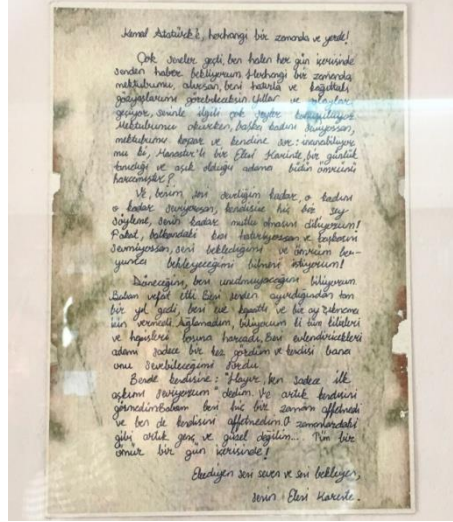 Kemal Atatürk'e, herhangi bir zamanda ve yerde!
Çok seneler geçti, ben halen her gün içerisinde
senden haber bekliyorum. Herhangi bir zamanda
mektubumu alırsan, beni hatırla ve kağıttaki
gözyaşlarımı görebileceksin. Yıllar ve olaylar
geçiyor, seninle ilgili çok şeyler konuşuluyor.
Mektubumu okurken, başka kadını seviyorsan,
mektubumu kopar ve kendine sor: inanabiliyor
mu ki, Manastır'lı bir Eleni Karinte, bir günlük
tanıdığı ve aşık olduğu adama bütün ömrünü
harcamıştır?
Ve, benim seni sevdiğim kadar, o kadını
o kadar seviyorsan, kendisine hiç bir şey
söyleme, senin kadar mutlu olmasını diliyorum!
Fakat, balkondaki kızı hatırlıyorsan ve başkasını
sevmiyorsan, seni beklediğimi ve ömrüm bo-
yunca bekleyeceğimi bilmeni istiyorum!
Döneceğini, beni unutmayacağını biliyorum.
Babam vefat etti. Beni senden ayırdığından tam
bir yıl geçti, beni eve kapattı ve bir ay
vermedi. Ağlamadım, biliyorum ki tüm kilitleri
ve hapisleri boşuna harcadı. Beni evlendirecekleri
adamı sadece bir kez gördüm ve kendisi bana
onu sevebileceğimi sordu.
Bende kendisine: "Hayır, ben sadece ilk
aşkımı seviyorum" dedim. Ve artık kendisini
görmedim. Babam beni hiç bir zaman affetmedi
ve ben de kendisini affetmedim. O zamanlardaki
gibi artık genç ve güzel değilim... Tüm bir
ömür bir gün içerisinde!
Ebediyen seni seven ve seni bekleyen,
senin Eleni Karinte.